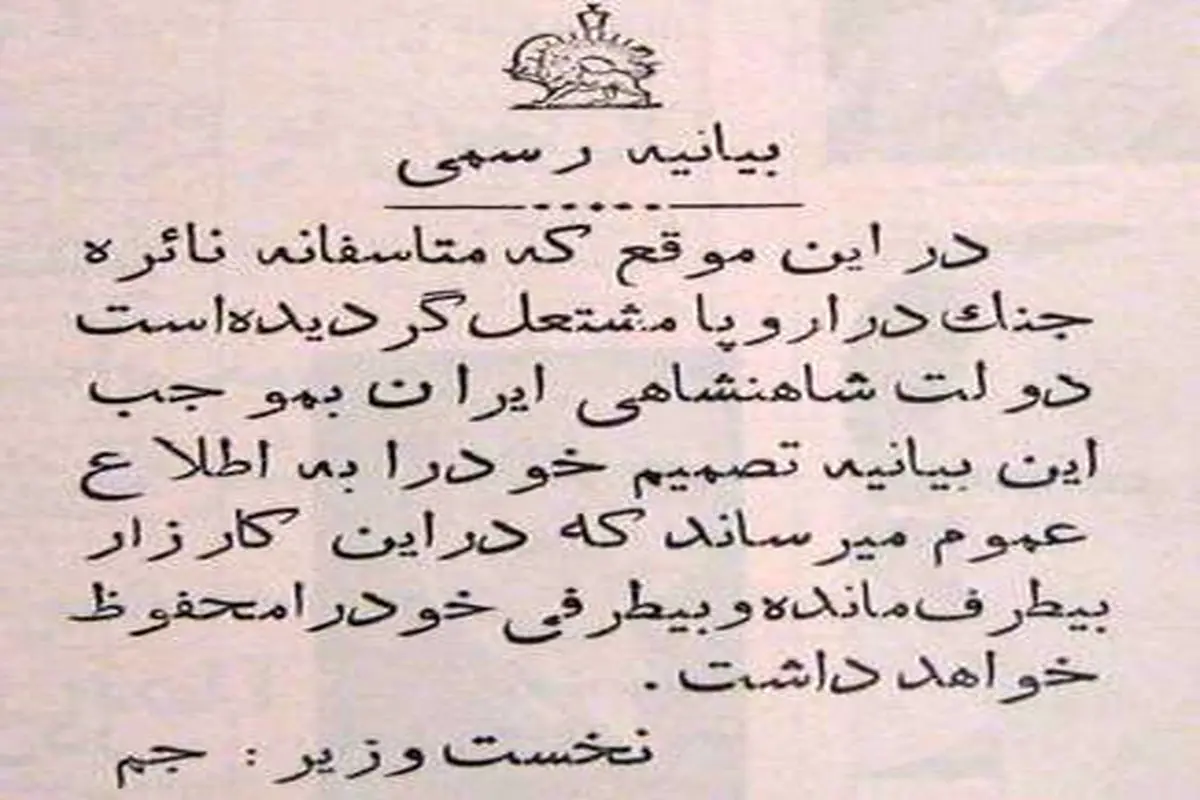 بیانیه رسمی
در این موقع که متاسفانه نائره
جنك در اروپا مشتعل گردیده‌است
دولت شاهنشاهی ایران بموجب
این بیانیه تصمیم خودرا به اطلاع
عموم میرساند که دراین کارزار
بیطرف مانده و بیطرفی خودرا محفوظ
خواهد داشت.
نخست وزیر: جم